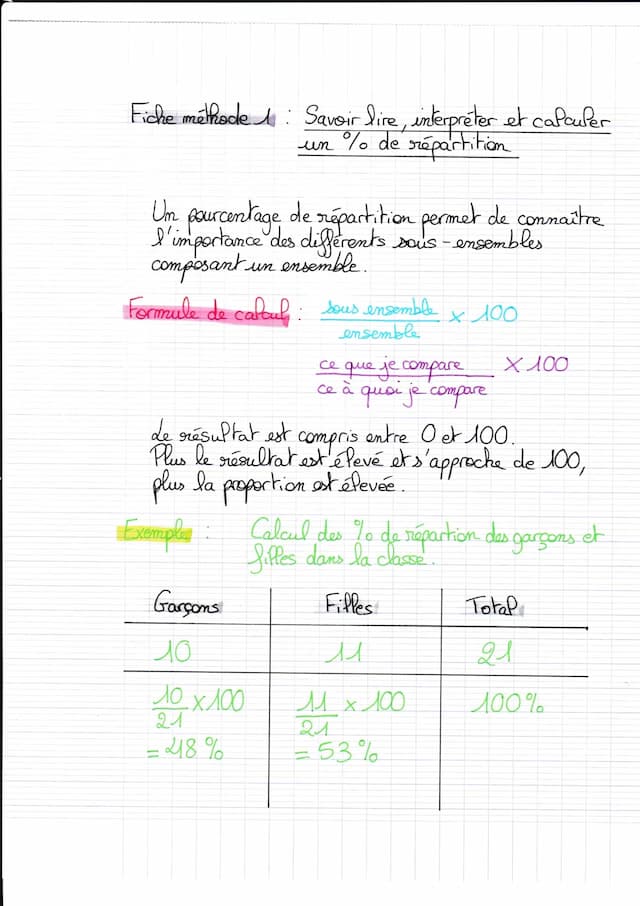 Fiche méthode 1 : Savoir lire, interpréter et calculer
un % de répartition
Un pourcentage de répartition permet de connaître
l'importance des différents sous-ensembles
composant un ensemble.
Formule de calcul : sous ensemble / ensemble × 100
ce que je compare / ce à quoi je compare × 100
Le résultat est compris entre 0 et 100.
Plus le résultat est élevé et s'approche de 100,
plus la proportion est élevée.
Exemple : Calcul des % de répartion des garçons et
filles dans la classe.
Garçons Filles Total
10 11 21
10/21 × 100 11/21 × 100 100%
= 48% = 53%